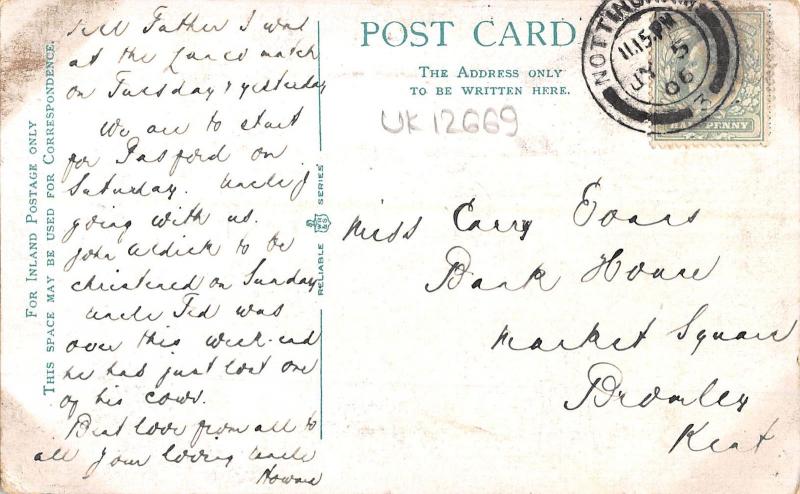 FOR INLAND POSTAGE ONLY
THIS SPACE MAY BE USED FOR CORRESPONDENCE.
Tell Father I was
at the Lancs match
on Tuesday & yesterday
We are to start
for Pasford on
Saturday. Uncle J
going with us.
John to be
christened on Sunday
Uncle Ted was
over this week-end
he has just lost one
of his cows.
Best love from all to
all your loving Uncle
Howard
RELIABLE SERIES
POST CARD
THE ADDRESS ONLY
TO BE WRITTEN HERE.
UK12669
NOTTINGHAM
11.15 PM
JY 5
06
3
HALFPENNY
Miss Carry Evans
Bank House
Market Square
Bromley
Kent